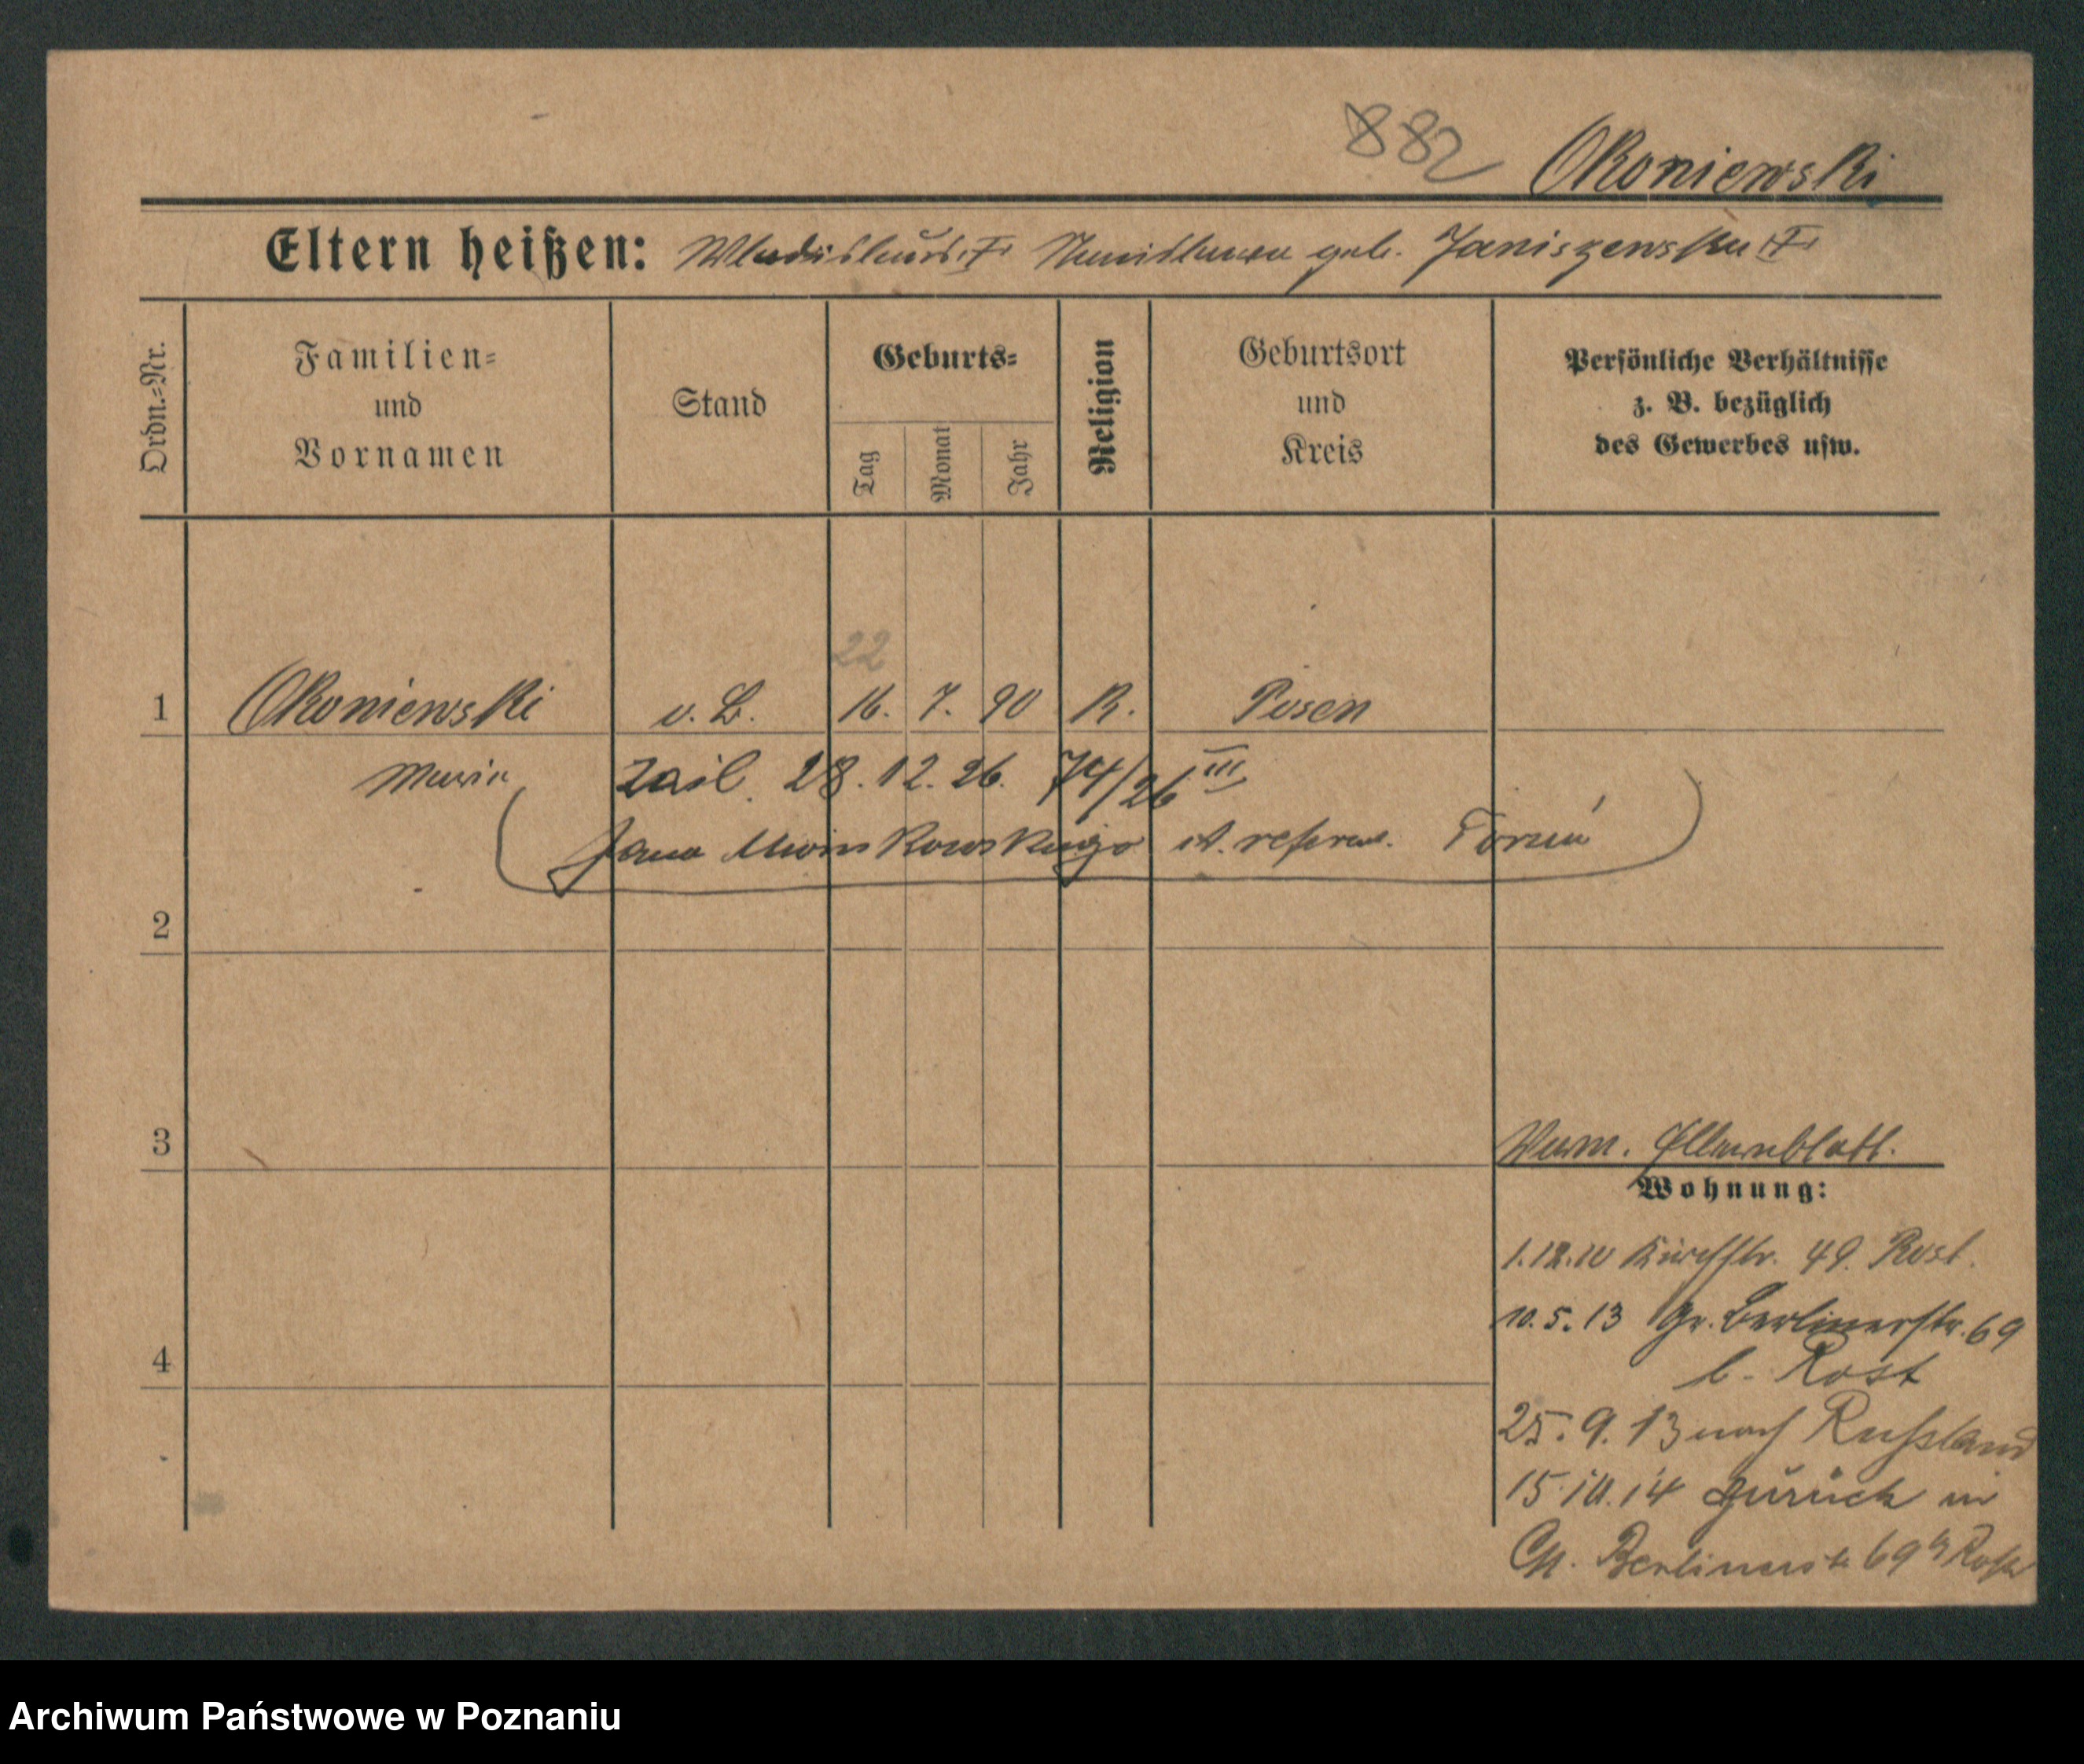 882 Okoniewski
Eltern heißen: Wladislaus † geb. Janiszewska †
Ordn.=Nr.
Familien=
und
Vornamen
Stand
Geburts=
Tag
Monat
Jahr
Religion
Geburtsort
und
Kreis
Persönliche Verhältnisse
z. B. bezüglich
des Gewerbes usw.
22
1 Okoniewski o. B. 16. 7. 90 R. Posen
Maria 28. 12. 26. 74/26 III
Jana Toruń
2
3
Wohnung:
49. Rost.
10. 5. 13 Gr. Berlinerstr. 69
b. Rost
4
25. 9. 13 nach Russland
15.10.14 zurück in
Gr. Berlinerstr 69 b/ Rost
Archiwum Państwowe w Poznaniu